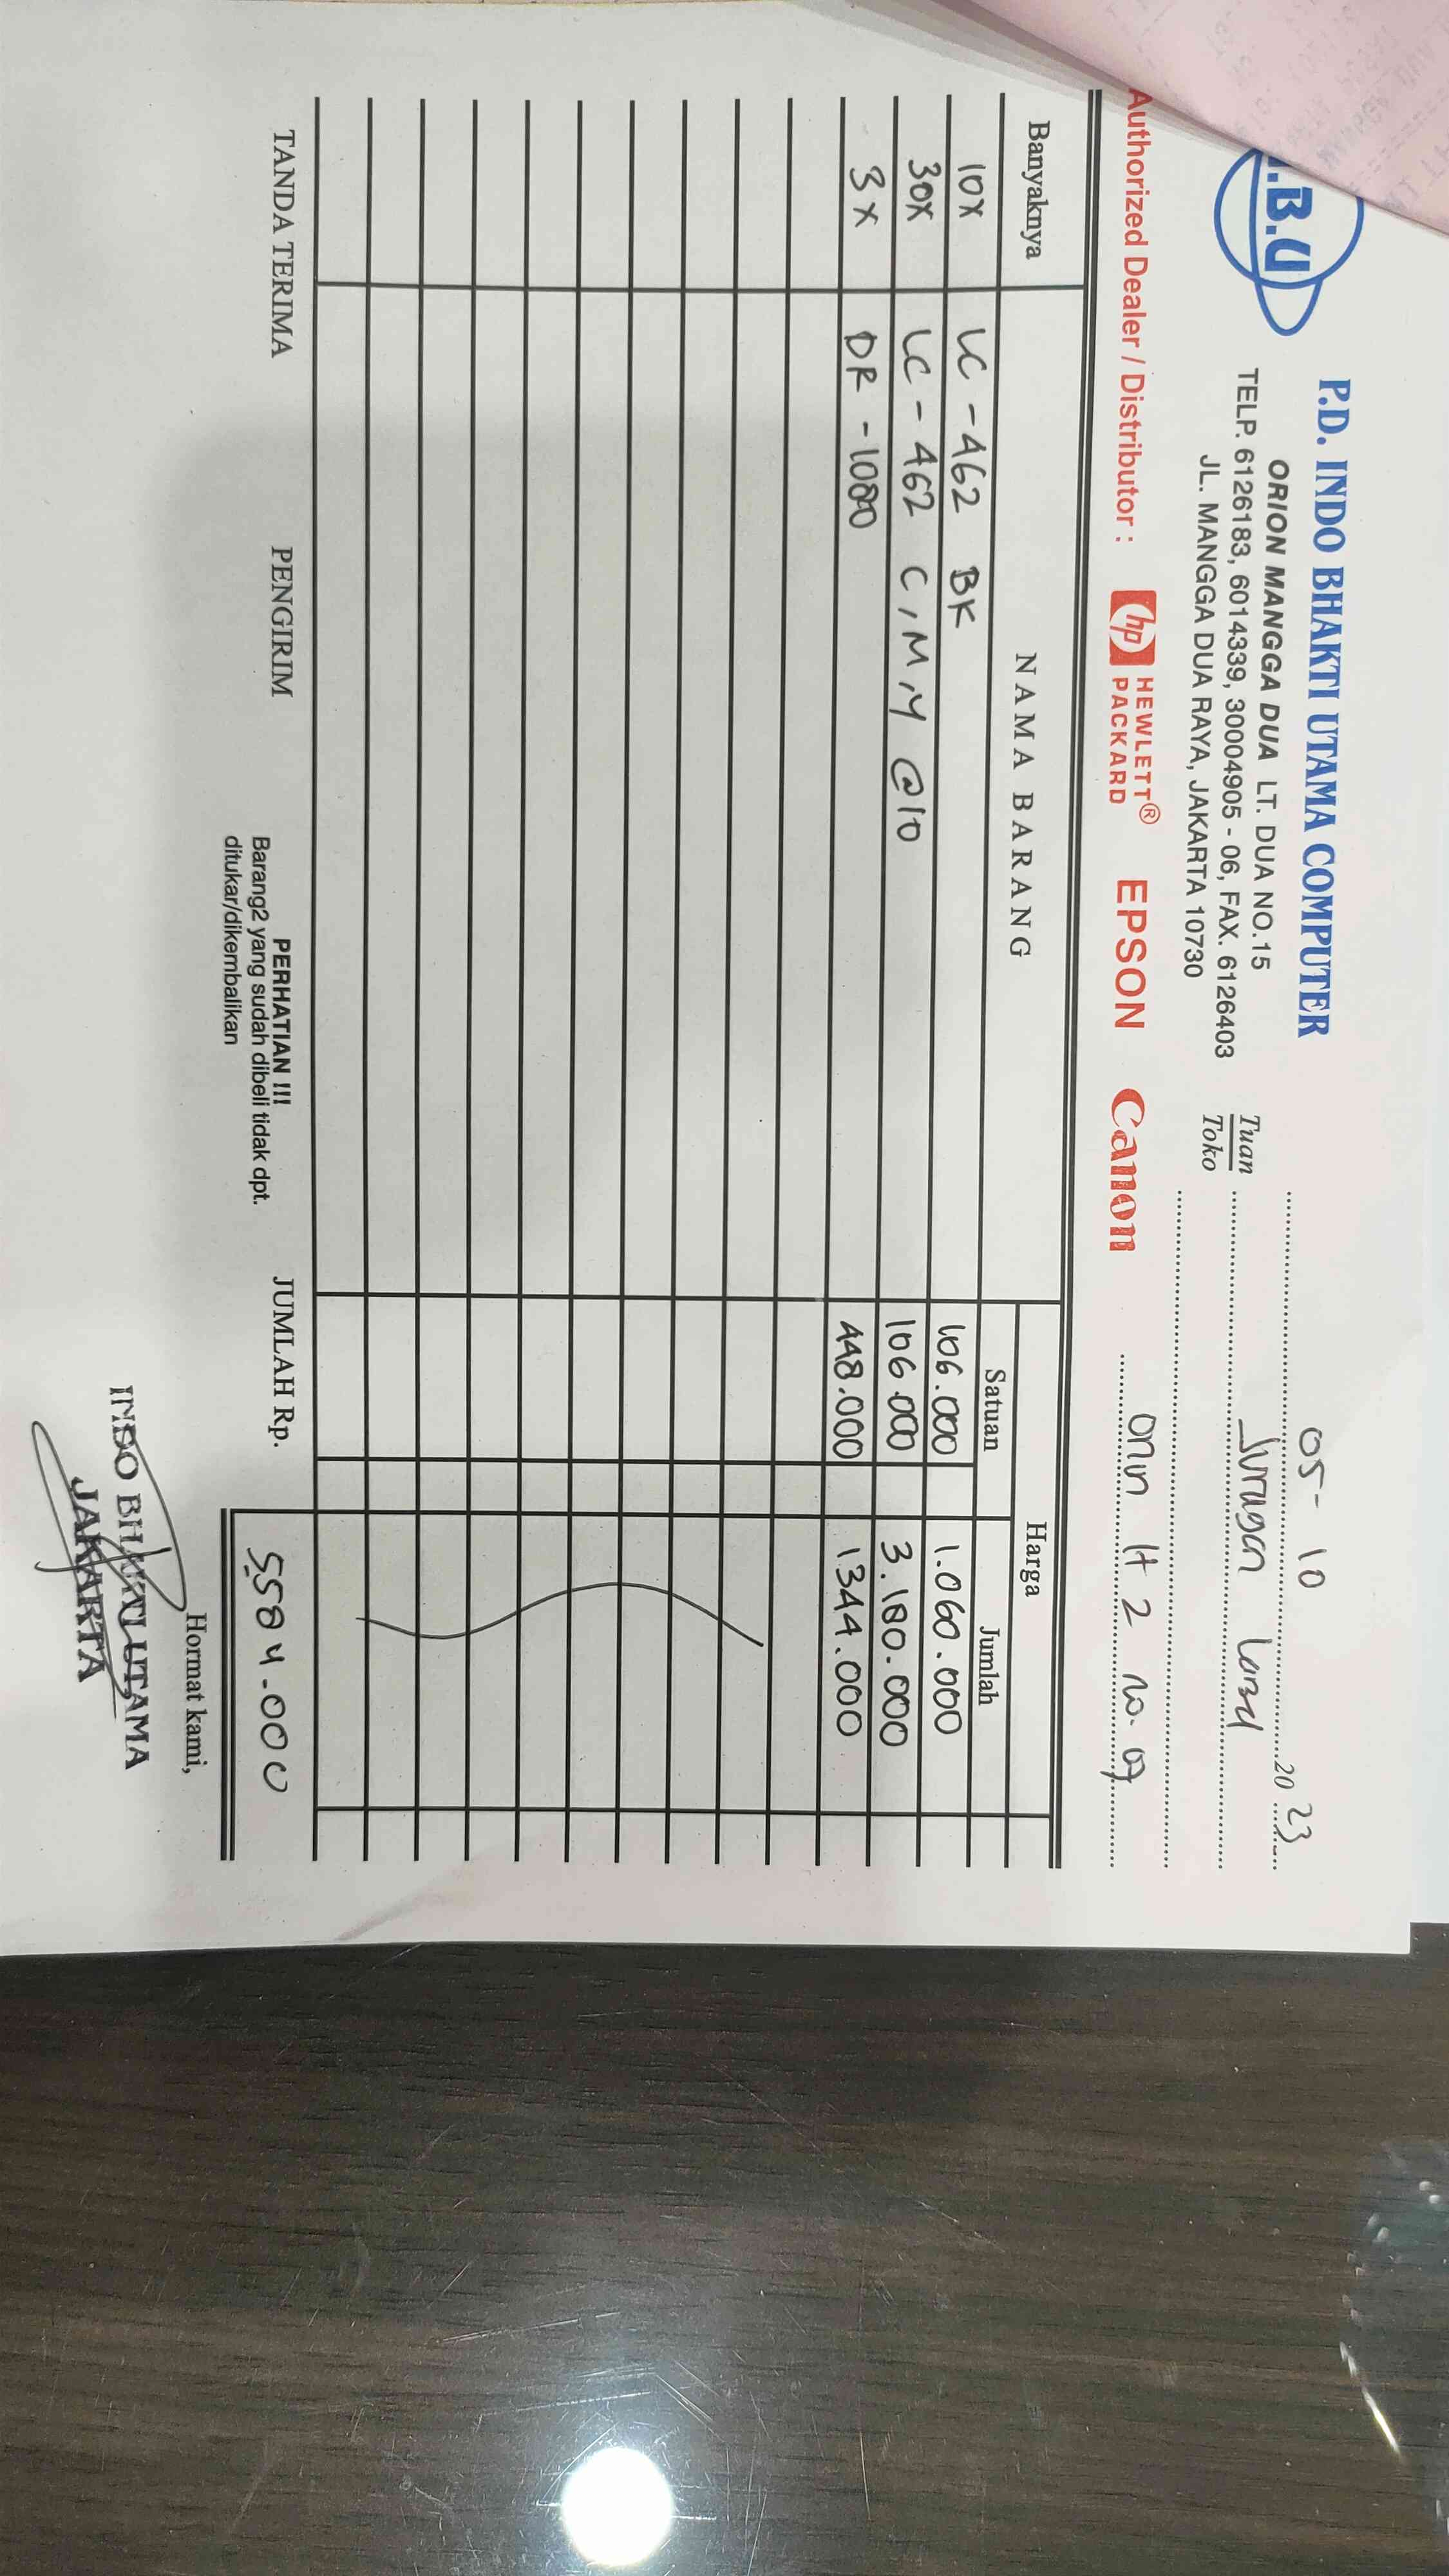 .B.U
P.D. INDO BHAKTI UTAMA COMPUTER
ORION MANGGA DUA LT. DUA NO.15
TELP. 6126183, 6014339, 30004905 - 06, FAX. 6126403
JL. MANGGA DUA RAYA, JAKARTA 10730
05-10 20 23
Tuan
Toko
Juragan
Authorized Dealer / Distributor : hp HEWLETT® PACKARD EPSON Canon
H 2 no. 09
Banyaknya NAMA BARANG Harga
Satuan Jumlah
10X LC-462 BK 106.000 1.060.000
30X LC-462 C,M,Y @10 106.000 3.180.000
3X DR-1000 448.000 1.344.000
TANDA TERIMA PENGIRIM PERHATIAN !!! JUMLAH Rp. 5.584.000
Barang2 yang sudah dibeli tidak dpt.
ditukar/dikembalikan
Hormat kami,
INDO BHAKTI UTAMA
JAKARTA